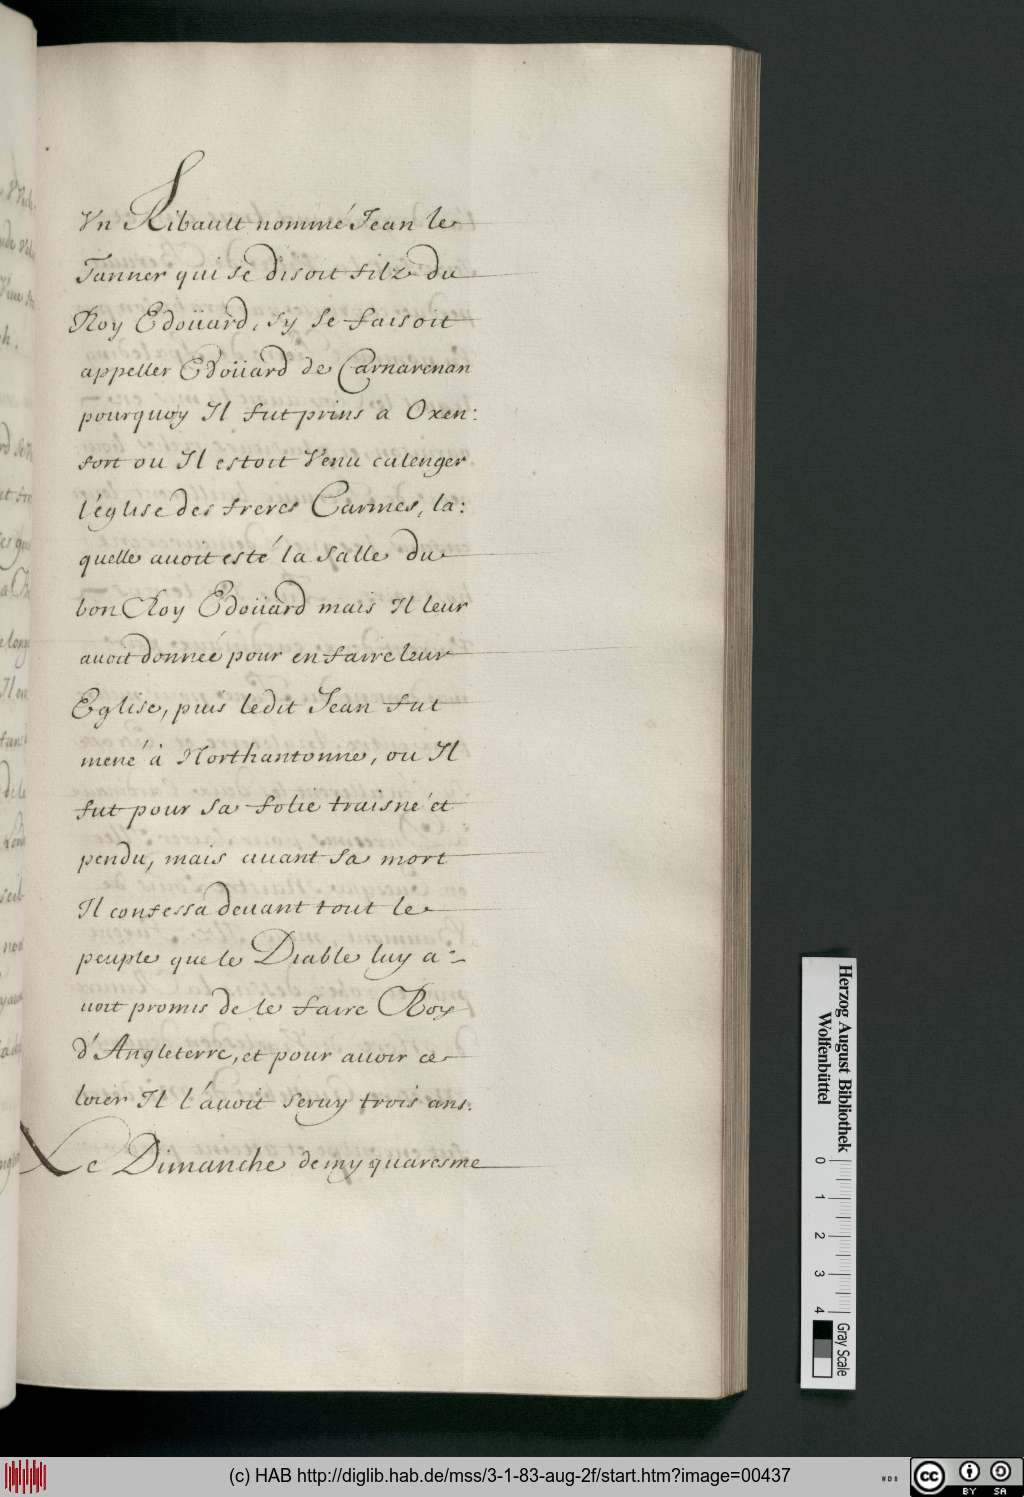 Vn Ribault nommé Jean le
Tanner qui se disoit filz du
Roy Edoüard, sy se faisoit
appeller Edoüard de Carnarenan
pourquoy Il fut prins a Oxen:
fort ou Il estoit Venu calenger
l'église des freres Carmes, la:
quelle auoit esté la salle du
bon Roy Edoüard mais Il leur
auoit donneé pour en faire leur
Eglise, puis ledit Jean fut
mené à Northantonne, ou Il
fut pour sa folie traisné et
pendu, mais auant sa mort
Il confessa deuant tout le
peuple que le Diable luy a-
uoit promis de le faire Roy
d'Angleterre, et pour auoir ce
loier Il l'auoit seruy trois ans.
Le Dimanche demy quaresme
Herzog August Bibliothek
Wolfenbüttel
0 1 2 3 4
Gray Scale
(c) HAB http://diglib.hab.de/mss/3-1-83-aug-2f/start.htm?image=00437
cc BY SA